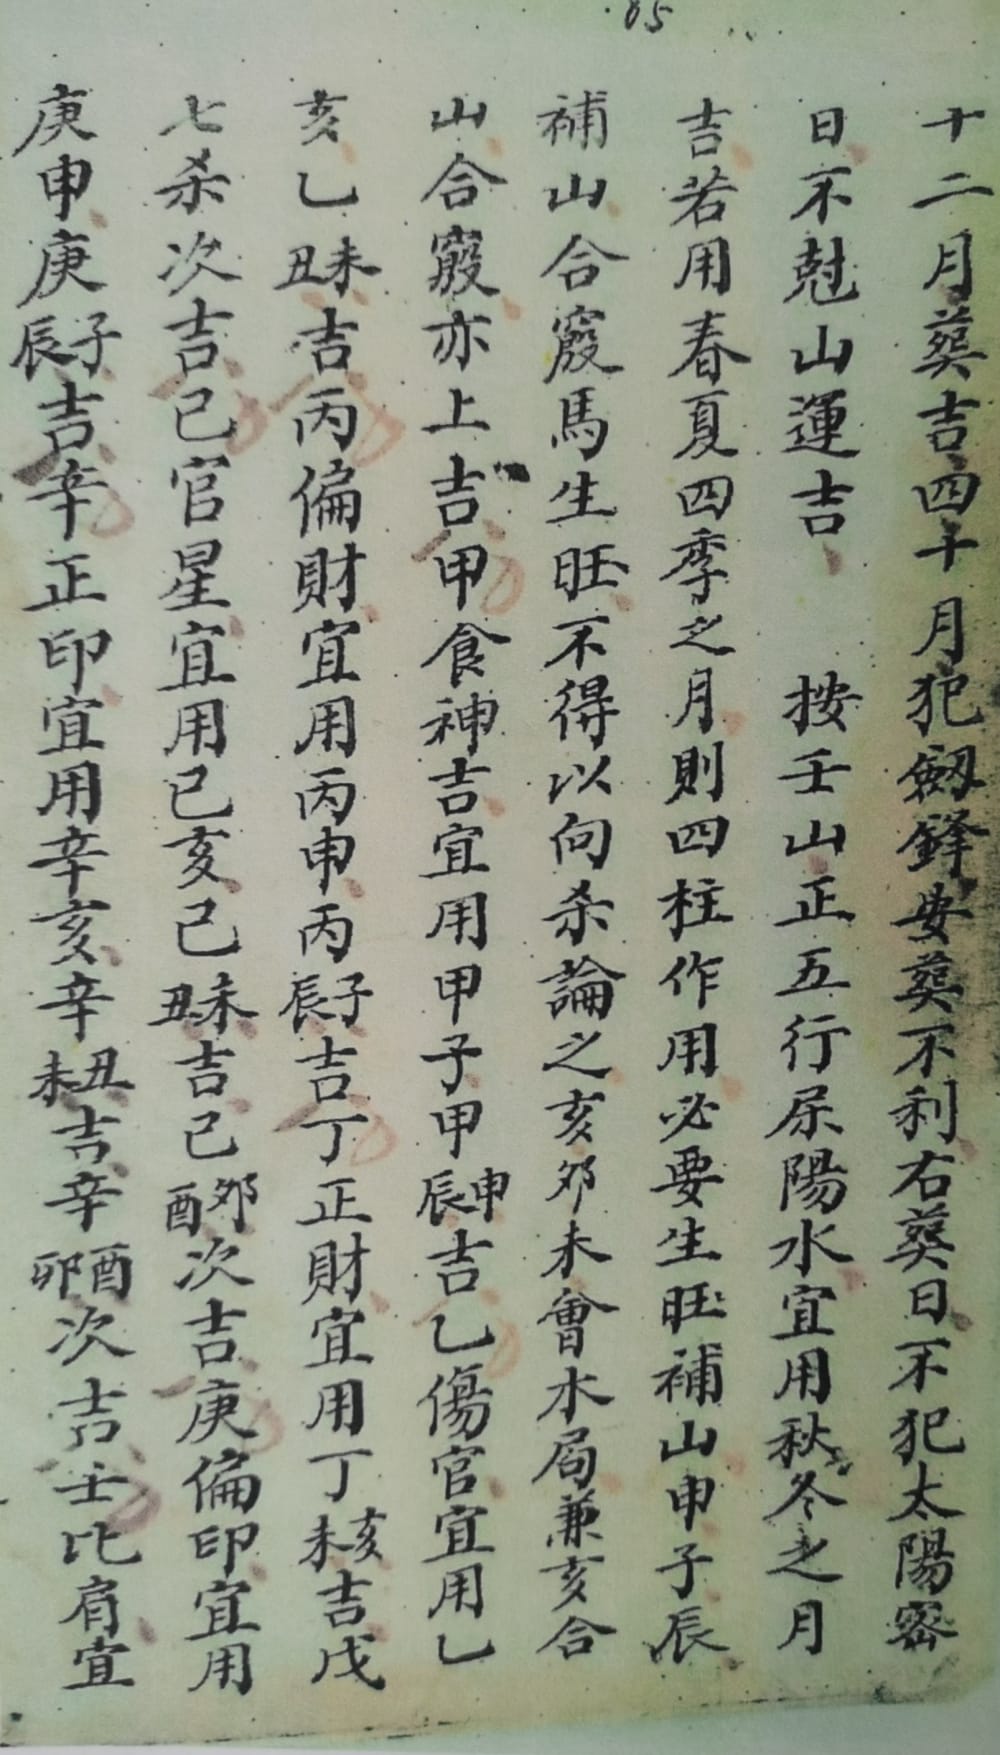 85
十二月葬吉四十月犯劔鋒安葬不利右葬日不犯太陽密
日不尅山運吉　按壬山正五行屎陽水宜用秋冬之月
吉若用春夏四季之月則四柱作用必要生旺補山申子辰
補山合馬生旺不得以向杀論之亥夘未會木局兼亥合
山合亦上吉甲食神吉宜用甲子甲申辰吉乙傷官宜用乙
亥乙未丑吉丙偏財宜用丙申丙子辰吉丁正財宜用丁亥未吉戊
七杀次吉己官星宜用己亥己未丑吉己夘酉次吉庚偏印宜用
庚申庚子辰吉辛正印宜用辛亥辛丑未吉辛酉卯次吉壬比肩宜